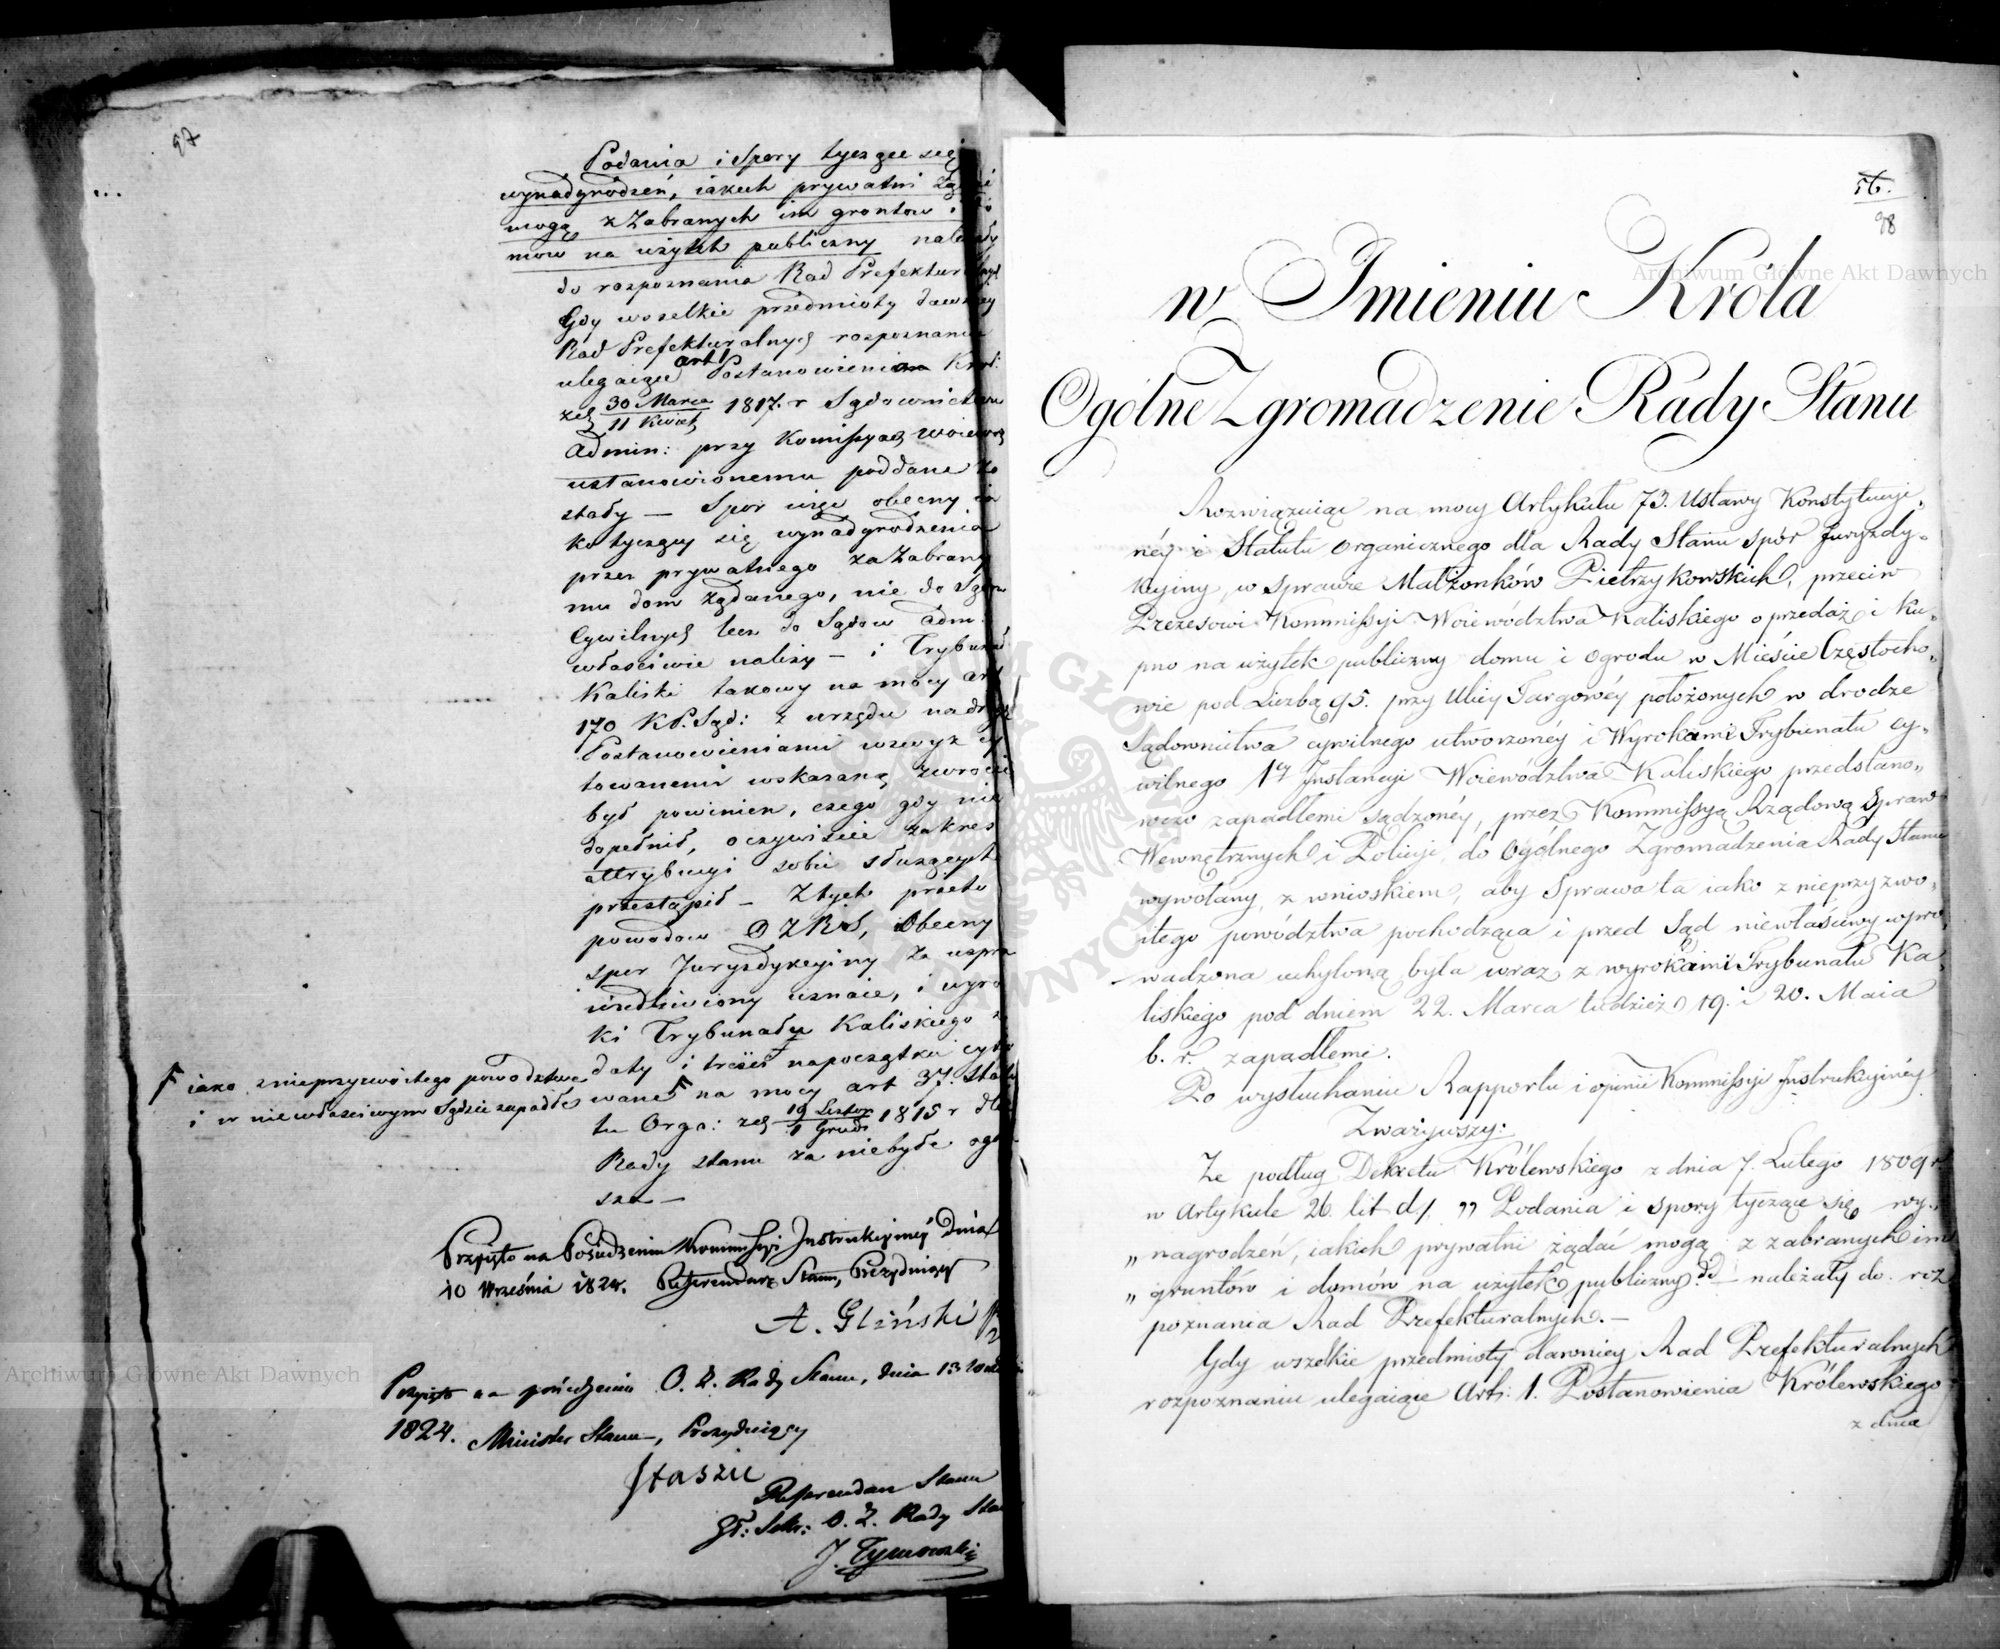 97
Podania i Spory tyczące się
wynadgrodzeń, iakich prywatni
mogą z Zabranych im grontow i
mow na użytek publiczny należały
do rozpoznania Rad Prefekturalnych
Gdy wszelkie przedmioty dawniey
Rad Prefekturalnych rozpoznaniu
ulegaiące art 1 Postanowienia Król:
z d. 30 Marca / 11 Kwiet 1817. r Sądownictwu
Admin: przy Kommissyach woiewodz
ustanowionemu poddane zo
stały — Spor więc obecny ia
ko tyczący się wynadgrodzenia
przez prywatnego za Zabrany
mu dom żądanego, nie do Sądow
Cywilnych lecz do Sądow Adm.
właściwie należy — i Trybunał
Kaliski takowy na mocy art
170 KP. Sąd: z urzędu na drogę
Postanowieniami wzwyż cy
towanemi wskazaną zwrócić
był powinien, czego gdy nie
dopełnił, oczywiście zakres
attrybucyi sobie służących
przestąpił — Z tych przeto
powodow O Z R S, Obecny
spor Jurysdykcyiny za uspra
wiedliwiony uznaie, i wyro
ki Trybunału Kaliskiego z
daty i treści na początku cyto
wane na mocy art 37. Statu
tu Orga: z d. 19 Listop / 1 Grud 1815 r dla
Rady stanu za niebyłe ogła
sza —
iako z nieprzyzwoitego powodztwa
i w niewłaściwym Sądzie zapadłe
Przyięto na Posiedzeniu Kommissyi Instrukcyiney dnia
10 Września 1824. Referendarz Stanu, Prezyduiący
A. Gliński
Przyięto na posiedzeniu O. Z. Rady Stanu, dnia 13
1824. Minister Stanu, Prezyduiący
Staszic
Referendarz Stanu
Sekr: O. Z. Rady Stanu
J. Tymowski
56.
98
w Imieniu Króla
Ogólne Zgromadzenie Rady Stanu
Rozwiązuiąc na mocy Artykułu 73. Ustawy Konstytucyi-
néy i Statutu organicznego dla Rady Stanu spór Juryzdy-
kcyiny, w sprawie Małżonków Pietrzykowskich, przeciw
Prezesowi Kommissyi Woiewództwa Kaliskiego o przedaż i Ku-
pno na użytek publiczny domu i ogrodu w Mieście Częstocho-
wie pod Liczbą 95. przy Ulicy Targowéy położonych w drodze
Sądownictwa cywilnego utworzonéy i Wyrokami Trybunału cy-
wilnego 1éy Instancyi Woiewództwa Kaliskiego przedstano-
wczo zapadłemi sądzonéy, przez Kommissyą Rządową Spraw
Wewnętrznych i Policyi, do Ogólnego Zgromadzenia Rady Stanu
wywołany, z wnioskiem, aby Sprawa ta iako z nieprzyzwo-
itego powództwa pochodząca i przed Sąd niewłaściwy wpro-
wadzona uchyloną była wraz z wyrokami Trybunału Ka-
liskiego pod dniem 22. Marca tudzież 19. i 20. Maia
b. r. zapadłemi.
Po wysłuchaniu Rapportu i opinii Kommissyi Instrukcyinéy
Zważywszy:
Że podług Dekretu Królewskiego z dnia 7. Lutego 1809 r
w Artykule 26. lit d/. „Podania i spory tyczące się wy-
„nagrodzeń, iakich prywatni żądać mogą z zabranych im
„gruntów i domów na użytek publiczny należały do roz
poznania Rad Prefekturalnych. —
Gdy wszelkie przedmioty dawniey Rad Prefekturalnych
rozpoznaniu ulegaiące Art: 1. Postanowienia Królewskiego
z dnia
Archiwum Główne Akt Dawnych
Archiwum Główne Akt Dawnych